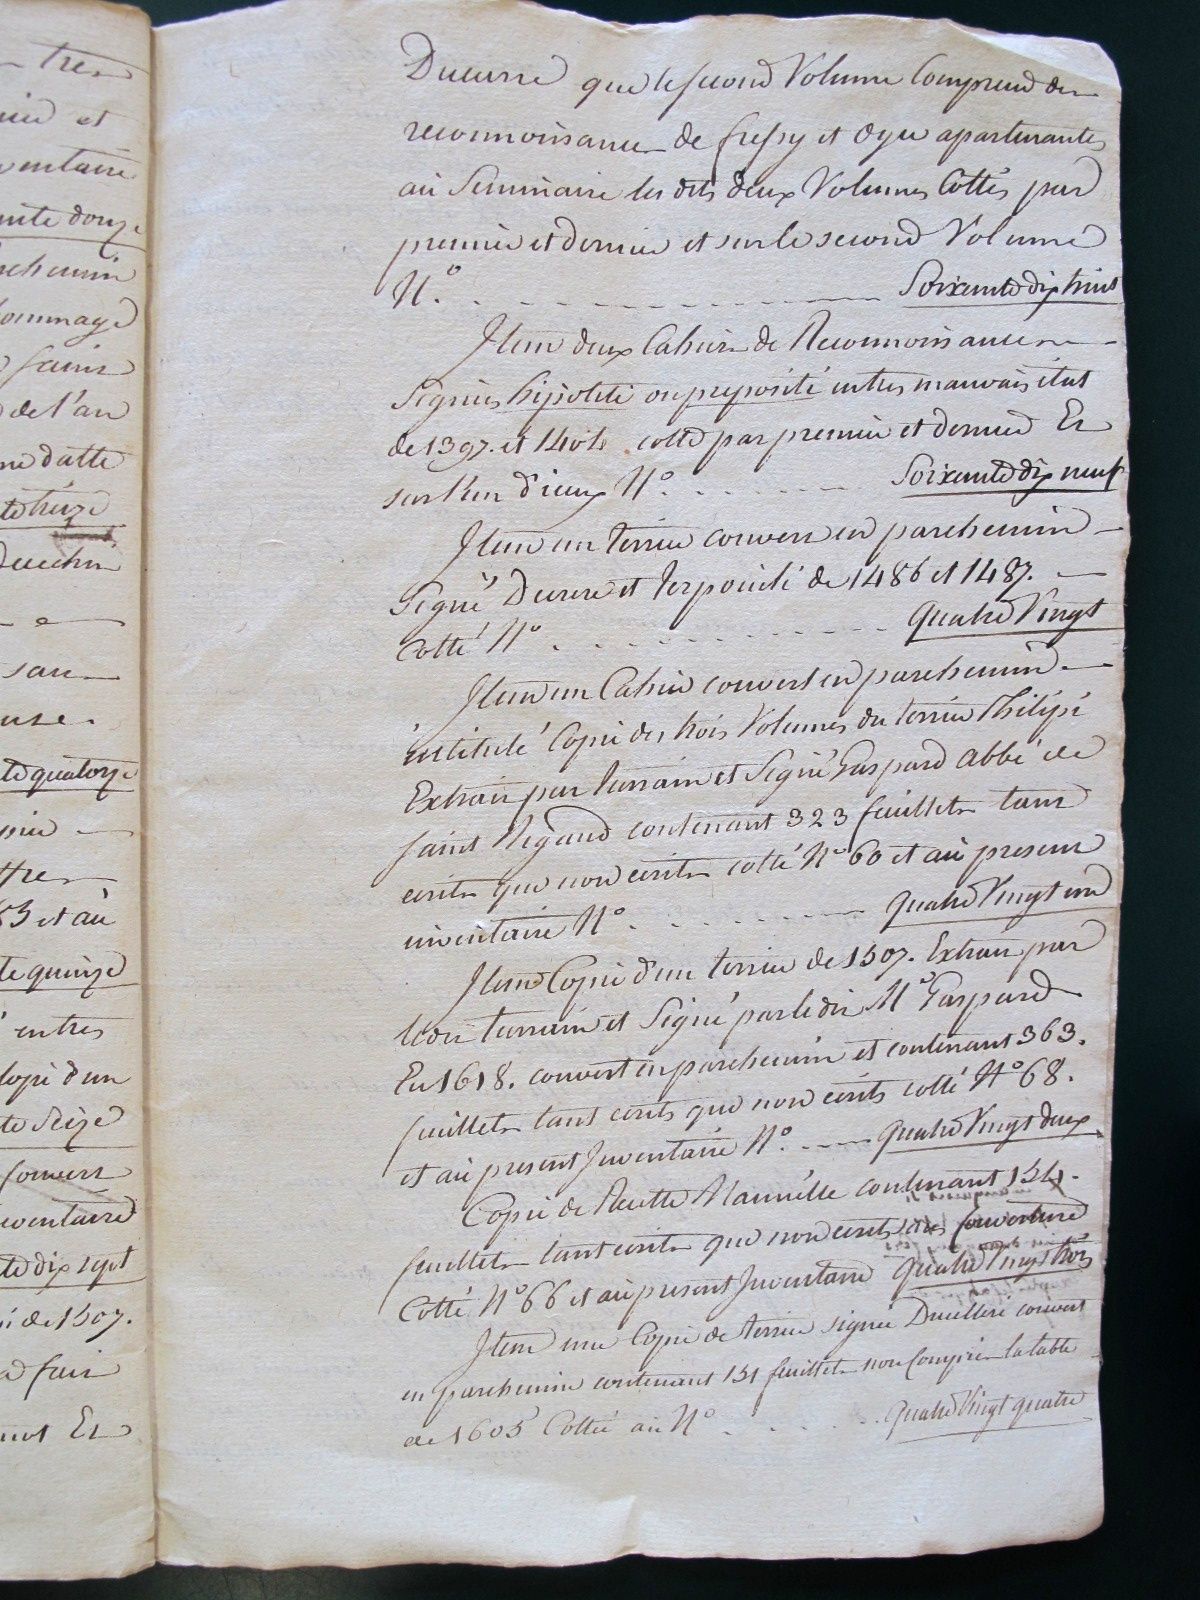 tres
et
ventaire
ante douze
rchemin
hommage
saint
de l'an
me datte
te treize
sau
te quatorze
53 et au
te quinze
entres
Copie d'un
te Seize
Couvert
ventaire
te dix sept
de 1507.
fait
Et
Ducurre que le second Volume Comprend des
reconnoissances de Cressy et oyé apartenantes
au Seminaire les dits deux Volumes Cottés par
premier et dernier et sur le second Volume
N.o Soixante dix huit
Item deux Cahiers de Reconnoissances
Signées hipoliti onpreposité en tres mauvais état
de 1397. et 1404 cotté par premier et dernier Et
sur l'un d'ieux N.o Soixante dix neuf
Item un terrier couvert en parchemin
Signé Ducurre et Terpointi de 1486 et 1487.
Cotté N.o Quatre Vingt
Item un Cahier couvert en parchemin
intitulé Copie des trois Volumes du terrier Philipé
Extrait par Terrain et Signé Gaspard abbé de
saint Rigaud contenant 323 feuillets tant
ecrits que non ecrits cotté N.o 60 et au present
inventaire N.o Quatre Vingt un
Item Copie d'un terrier de 1507. Extrait par
ledit Terrain et Signé par ledit M.e Gaspard
En 1618. couvert en parchemin et contenant 363.
feuillets tant ecrits que non ecrits cotté N.o 68.
et au present Inventaire N.o Quatre Vingt deux
Copie de Recette Manuelle contenant 154.
feuillets tant ecrits que non ecrits sans Couverture
Cotté N.o 66 et au present Inventaire Quatre Vingt trois
Item une Copie de terrier signée Ducelleri couvert
en parchemin contenant 151 feuillets non Compris la table
de 1605 Cottée au N.o Quatre Vingt quatre